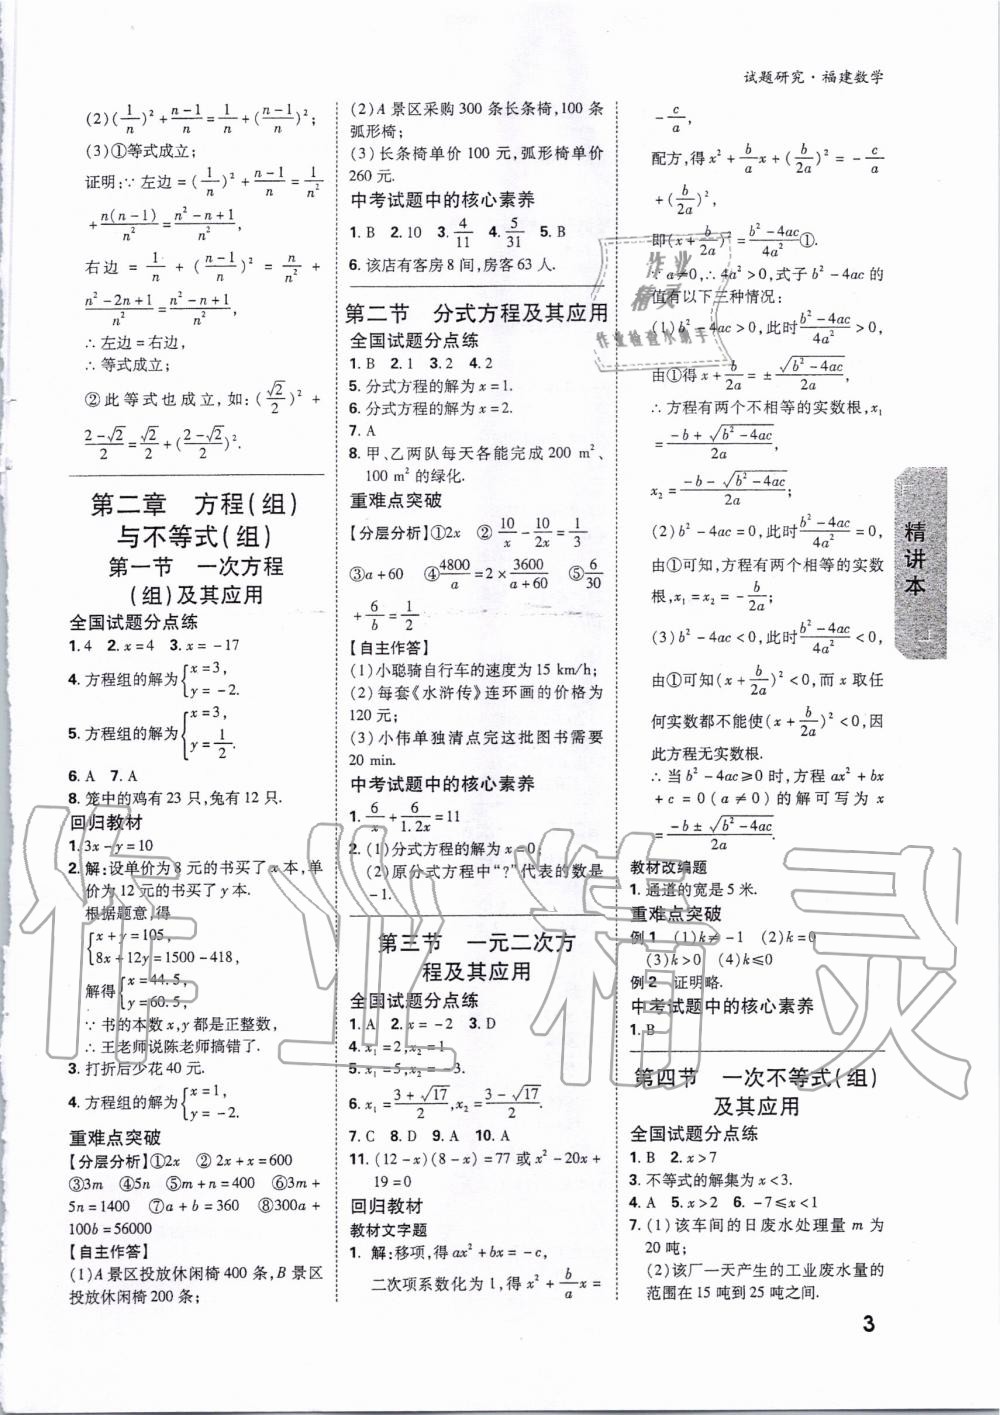 试题研究·福建数学
(2)(1/n)²+(n-1)/n=1/n+((n-1)/n)²;
(3)①等式成立;
证明:∵左边=(1/n)²+(n-1)/n=1/n²
+n(n-1)/n²=(n²-n+1)/n²,
右边=1/n+((n-1)/n)²=n/n²+
(n²-2n+1)/n²=(n²-n+1)/n²,
∴左边=右边,
∴等式成立;
②此等式也成立,如:(√2/2)²+
(2-√2)/2=√2/2+((2-√2)/2)².
第二章 方程(组)
与不等式(组)
第一节 一次方程
(组)及其应用
全国试题分点练
1.4 2.x=4 3.x=-17
4.方程组的解为{x=3,
y=-2.
5.方程组的解为{x=3,
y=1/2.
6.A 7.A
8.笼中的鸡有23只,兔有12只.
回归教材
1.3x-y=10
2.解:设单价为8元的书买了x本,单
价为12元的书买了y本.
根据题意,得
{x+y=105,
8x+12y=1500-418,
解得{x=44.5,
y=60.5,
∵书的本数x,y都是正整数,
∴王老师说陈老师搞错了.
3.打折后少花40元.
4.方程组的解为{x=1,
y=-2.
重难点突破
【分层分析】①2x ②2x+x=600
③3m ④5n ⑤m+n=400 ⑥3m+
5n=1400 ⑦a+b=360 ⑧300a+
100b=56000
【自主作答】
(1)A景区投放休闲椅400条,B景区
投放休闲椅200条;
(2)A景区采购300条长条椅,100条
弧形椅;
(3)长条椅单价100元,弧形椅单价
260元.
中考试题中的核心素养
1.B 2.10 3.4/11 4.5/31 5.B
6.该店有客房8间,房客63人.
第二节 分式方程及其应用
全国试题分点练
1.B 2.1 3.2 4.2
5.分式方程的解为x=1.
6.分式方程的解为x=2.
7.A
8.甲、乙两队每天各能完成200m²、
100m²的绿化.
重难点突破
【分层分析】①2x ②10/x-10/2x=1/3
③a+60 ④4800/a=2×3600/(a+60) ⑤6/30
+6/b=1/2
【自主作答】
(1)小聪骑自行车的速度为15km/h;
(2)每套《水浒传》连环画的价格为
120元;
(3)小伟单独清点完这批图书需要
20min.
中考试题中的核心素养
1.6/x+6/1.2x=11
2.(1)分式方程的解为x=0;
(2)原分式方程中“?”代表的数是
-1.
第三节 一元二次方
程及其应用
全国试题分点练
1.A 2.x=-2 3.D
4.x₁=2,x₂=1
5.x₁=1,x₂=-3.
6.x₁=(3+√17)/2,x₂=(3-√17)/2.
7.C 8.D 9.A 10.A
11.(12-x)(8-x)=77或x²-20x+
19=0
回归教材
教材文字题
1.解:移项,得ax²+bx=-c,
二次项系数化为1,得x²+(b/a)x=
-c/a,
配方,得x²+(b/a)x+(b/2a)²=-c/a
+(b/2a)²,
即(x+b/2a)²=(b²-4ac)/4a²①.
∵a≠0,∴4a²>0,式子b²-4ac的
值有以下三种情况:
(1)b²-4ac>0,此时(b²-4ac)/4a²>0,
由①得x+b/2a=±√(b²-4ac)/2a,
∴方程有两个不相等的实数根,x₁
=(-b+√(b²-4ac))/2a,
x₂=(-b-√(b²-4ac))/2a;
(2)b²-4ac=0,此时(b²-4ac)/4a²=0,
由①可知,方程有两个相等的实数
根,x₁=x₂=-b/2a;
(3)b²-4ac<0,此时(b²-4ac)/4a²<0,
由①可知(x+b/2a)²<0,而x取任
何实数都不能使(x+b/2a)²<0,因
此方程无实数根.
∴当b²-4ac≥0时,方程ax²+bx
+c=0(a≠0)的解可写为x
=(-b±√(b²-4ac))/2a.
教材改编题
1.通道的宽是5米.
重难点突破
例1 (1)k≠-1 (2)k=0
(3)k>0 (4)k≤0
例2 证明略.
中考试题中的核心素养
1.B
第四节 一次不等式(组)
及其应用
全国试题分点练
1.B 2.x>7
3.不等式的解集为x<3.
4.A 5.x>2 6.-7≤x<1
7.(1)该车间的日废水处理量m为
20吨;
(2)该厂一天产生的工业废水量的
范围在15吨到25吨之间.
精讲本
3
作业
精灵
作业检查小助手
作业精灵